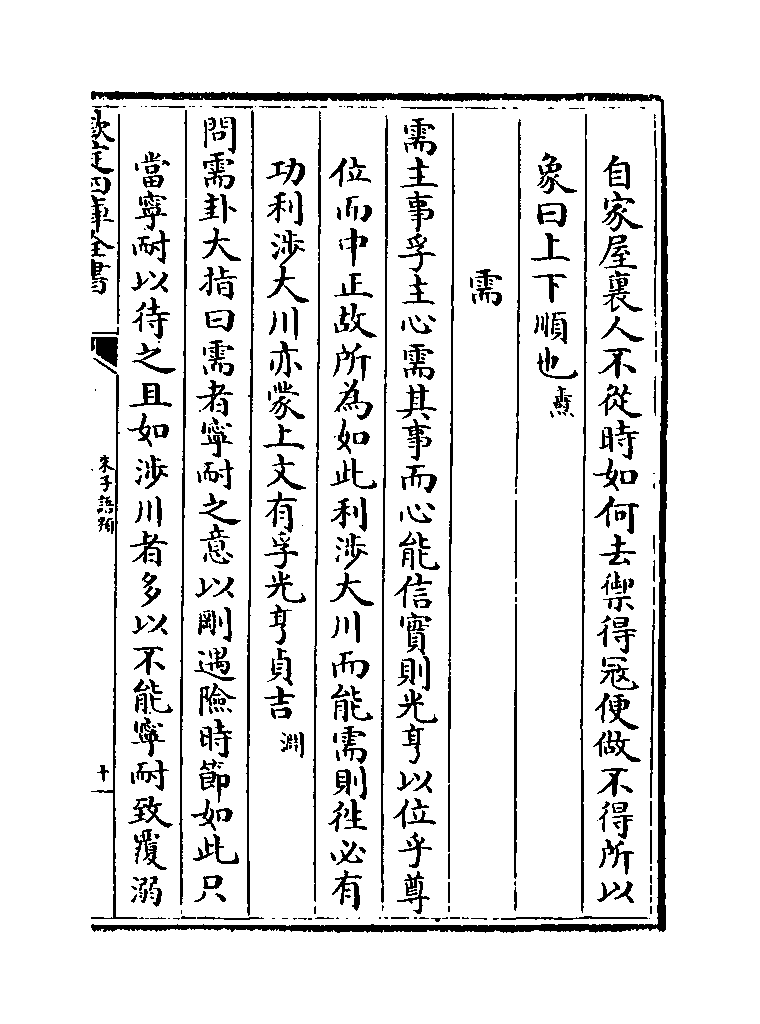 自家屋裏人不從時如何去禦得冦便做不得所以
象曰上下順也𤋮
需
需主事孚主心需其事而心能信實則光亨以位乎尊
位而中正故所為如此利涉大川而能需則徃必有
功利涉大川亦蒙上文有孚光亨貞吉淵
問需卦大指曰需者寧耐之意以剛遇險時節如此只
當寧耐以待之且如涉川者多以不能寧耐致覆溺
欽定四庫全書
朱子語類
十一